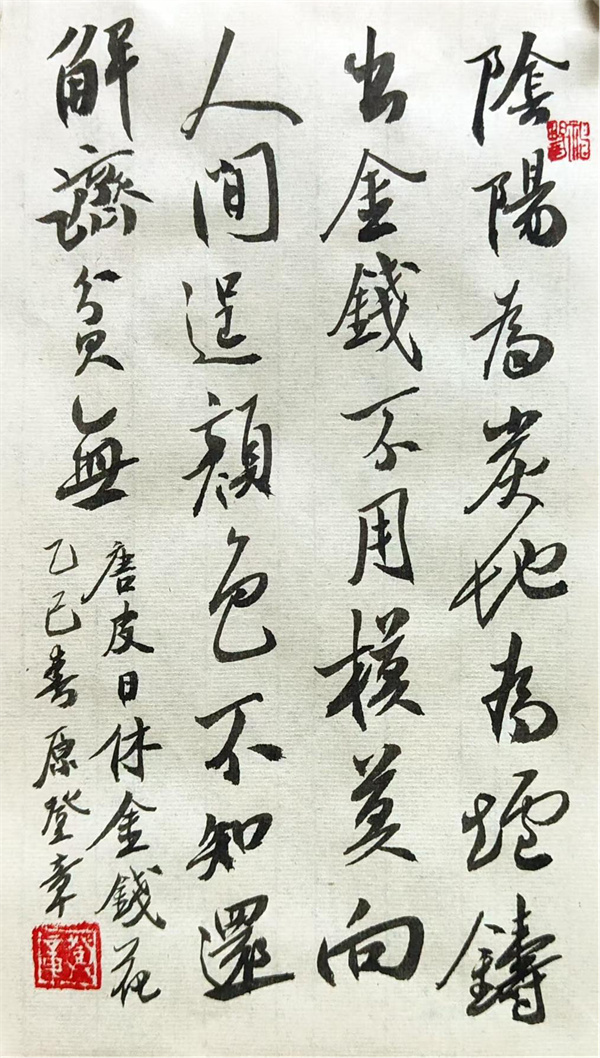 陰陽為炭地為爐鑄
出金錢不用模莫向
人間逞顏色不知還
解濟貧無
唐皮日休金錢花
乙巳春原登章